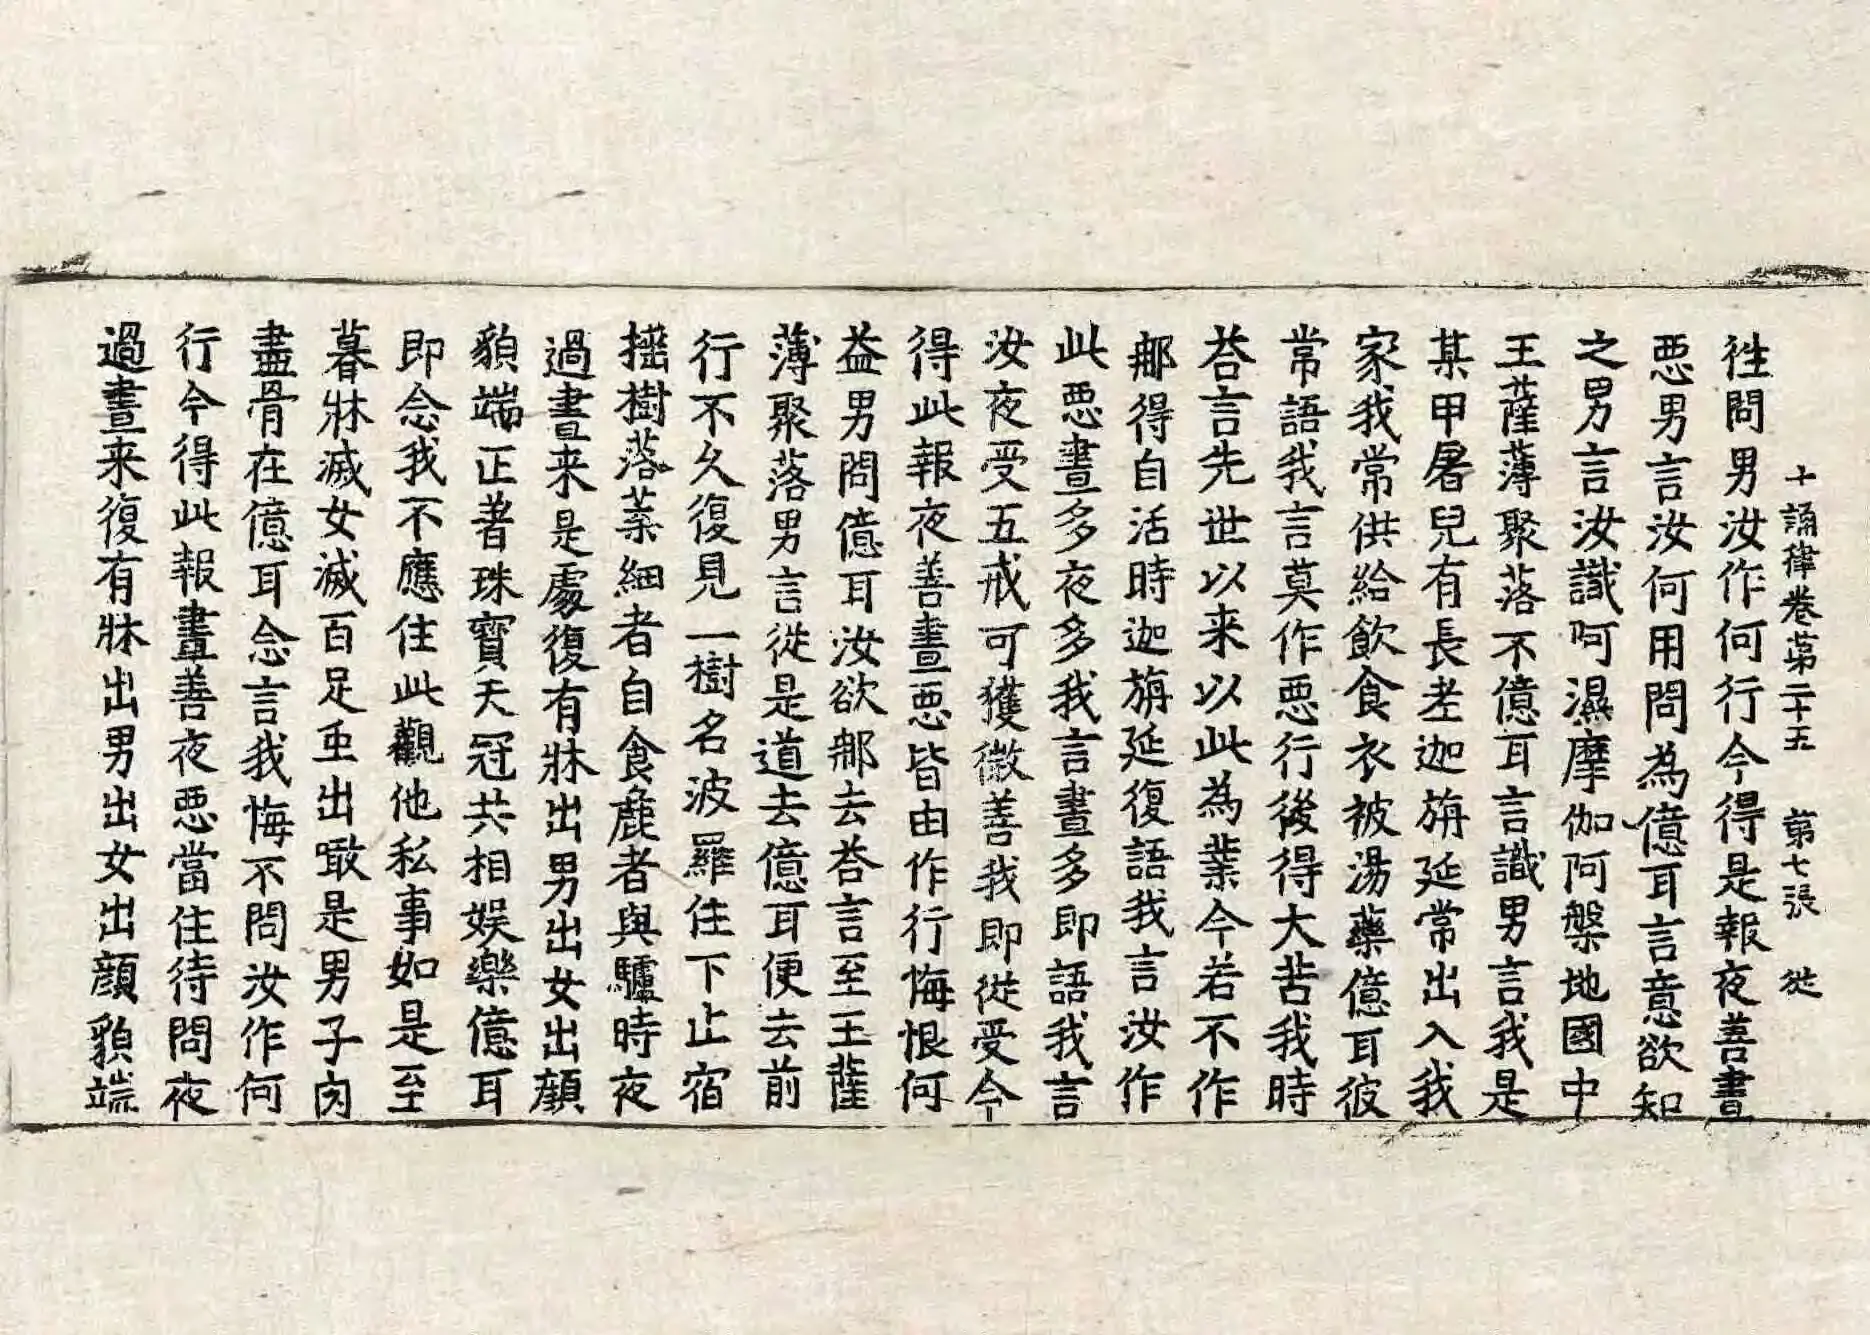 十誦律卷第二十五　第七張　㳂
徃問男汝作何行今得是報夜善晝
惡男言汝何用問為億耳言意欲知
之男言汝識呵濕摩伽阿槃地國中
王薩薄聚落不億耳言識男言我是
某甲屠兒有長老迦旃延常出入我
家我常供給飲食衣被湯藥億耳彼
常語我言莫作惡行後得大苦我時
荅言先世以来以此為業今若不作
那得自活時迦旃延復語我言汝作
此惡晝多夜多我言晝多即語我言
汝夜受五戒可獲微善我即從受今
得此報夜善晝惡皆由作行悔恨何
益男問億耳汝欲那去荅言至王薩
薄聚落男言從是道去億耳便去前
行不久復見一樹名波羅住下止宿
揺樹落葉細者自食麁者與驢時夜
過晝来是處復有牀出男出女出顔
貌端正著珠寳天冠共相娛樂億耳
即念我不應住此觀他私事如是至
暮牀滅女滅百足䖝出噉是男子肉
盡骨在億耳念言我悔不問汝作何
行今得此報晝善夜惡當住待問夜
過晝来復有牀出男出女出顔貌端